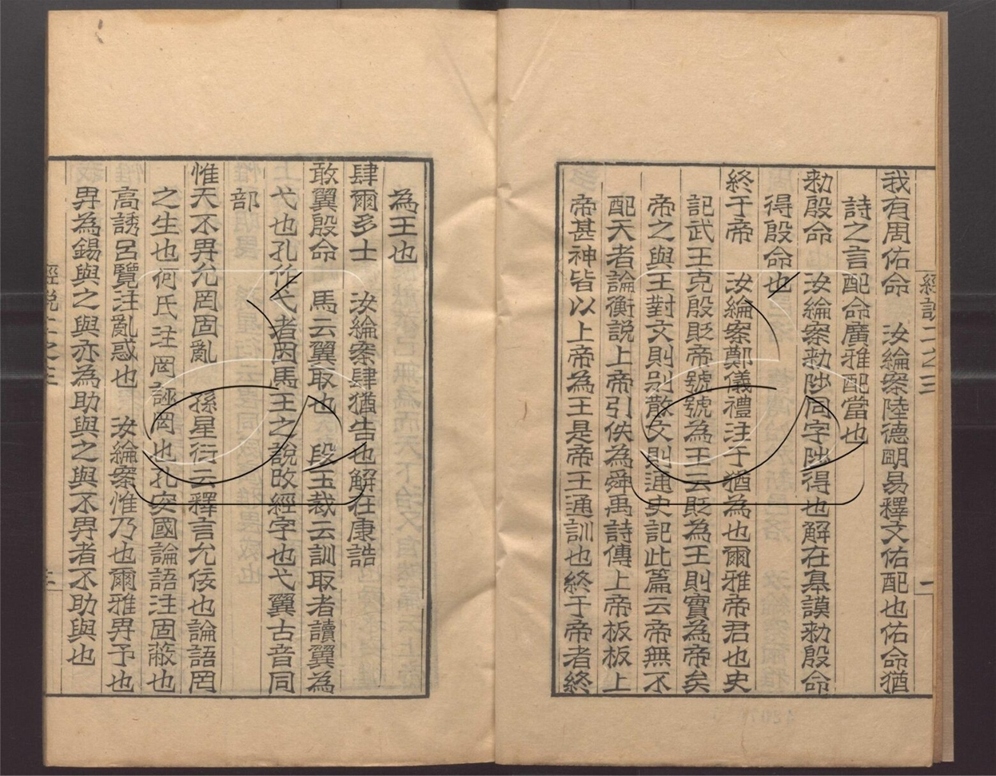 我有周佑命　汝綸案陸德明易釋文佑配也佑命猶
詩之言配命廣雅配當也
勑殷命　汝綸案勑陟同字陟得也解在皋謨勑殷命
得殷命也
終于帝　汝綸案鄭儀禮注于猶為也爾雅帝君也史
記武王克殷貶帝號號為王云貶為王則實為帝矣
帝之與王對文則別散文則通史記此篇云帝無不
配天者論衡說上帝引佚為舜禹詩傳上帝板板上
帝甚神皆以上帝為王是帝王通訓也終于帝者終
為王也
肆爾多士　汝綸案肆猶告也解在康誥
敢翼殷命　馬云翼取也　段玉裁云訓取者讀翼為
弋也孔作弋者因馬王之說改經字也弋翼古音同
部
惟天不畀允罔固亂　孫星衍云釋言允佞也論語罔
之生也何氏注罔誣罔也孔安國論語注固蔽也
高誘呂覽注亂惑也　汝綸案惟乃也爾雅畀予也
畀為錫與之與亦為助與之與不畀者不助與也
經說二之三
一
經說二之三